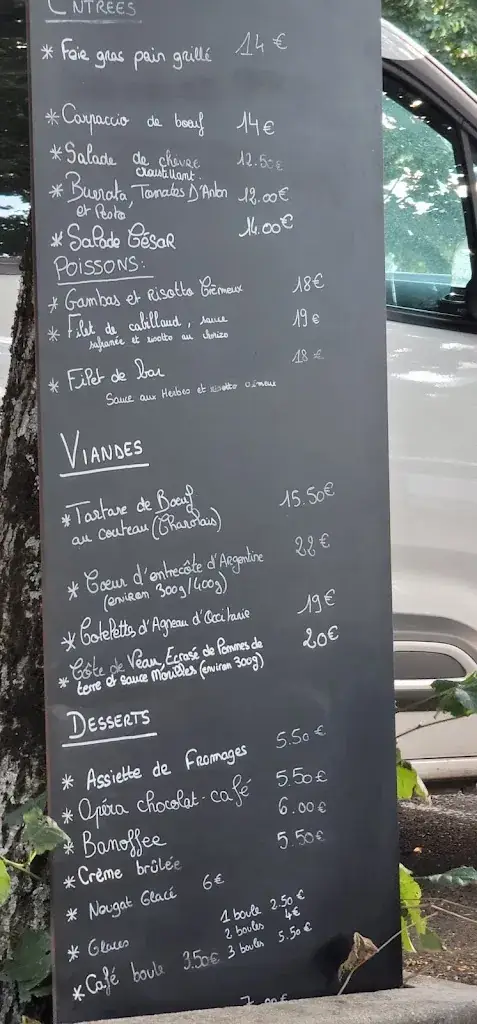 ENTRÉES
* Foie gras pain grillé 14€
* Carpaccio de bœuf 14€
* Salade de chèvre 12.50€
croustillant.
* Burrata, Tomates D'Antan 12.00€
et Pesto
* Salade César 14.00€
POISSONS:
* Gambas et Risotto Crémeux 18€
* Filet de cabillaud, sauce 19€
safranée et risotto au chorizo
* Filet de bar 18€
Sauce aux Herbes et risotto crémeux
VIANDES
* Tartare de Bœuf 15.50€
au couteau (Charolais)
* Coeur d'entrecôte d'Argentine 22€
(environ 300g/400g)
* Cotelettes d'Agneau d'Occitanie 19€
* Côte de Veau, Ecrasé de Pommes de 20€
terre et sauce Morilles (environ 300g)
DESSERTS
* Assiette de Fromages 5.50€
* Opéra chocolat-café 5.50€
* Banoffee 6.00€
* Crème brûlée 5.50€
* Nougat Glacé 6€
* Glaces 1 boule 2.50€
2 boules 4€
3 boules 5.50€
* Café boule 3.50€